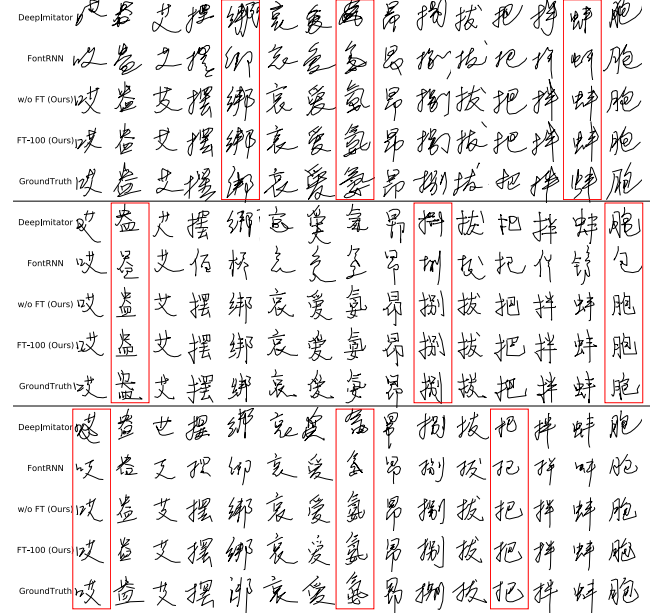 DeepImitator 盎 艾 摆 绑 哀 爱 昂 捌 拔 把 拌 蚌 胞
FontRNN 哎 盎 艾 摆 哀 爱 氨 昂 捌 拔 把 拌 蚌 胞
w/o FT (Ours) 哎 盎 艾 摆 绑 哀 爱 氨 昂 捌 拔 把 拌 蚌 胞
FT-100 (Ours) 哎 盎 艾 摆 绑 哀 爱 氨 昂 捌 拔 把 拌 蚌 胞
GroundTruth 哎 盎 艾 摆 绑 哀 爱 氨 昂 捌 拔 把 拌 蚌 胞
DeepImitator 盎 艾 摆 绑 哀 爱 氨 昂 捌 拔 把 拌 蚌 胞
FontRNN 哎 艾 佰 昂 捌 拔 把 包
w/o FT (Ours) 哎 盎 艾 摆 绑 哀 爱 氨 昂 捌 拔 把 拌 蚌 胞
FT-100 (Ours) 哎 盎 艾 摆 绑 哀 爱 氨 昂 捌 拔 把 拌 蚌 胞
GroundTruth 哎 盎 艾 摆 绑 哀 爱 氨 昂 捌 拔 把 拌 蚌 胞
DeepImitator 盎 摆 绑 哀 爱 氨 昂 捌 拔 把 拌 蚌 胞
FontRNN 哎 盎 艾 摆 绑 哀 爱 氨 昂 捌 拔 把 拌 蚌 胞
w/o FT (Ours) 哎 盎 艾 摆 绑 哀 爱 氨 昂 捌 拔 把 拌 蚌 胞
FT-100 (Ours) 哎 盎 艾 摆 绑 哀 爱 氨 昂 捌 拔 把 拌 蚌 胞
GroundTruth 哎 盎 艾 摆 绑 哀 爱 氨 昂 捌 拔 把 拌 蚌 胞